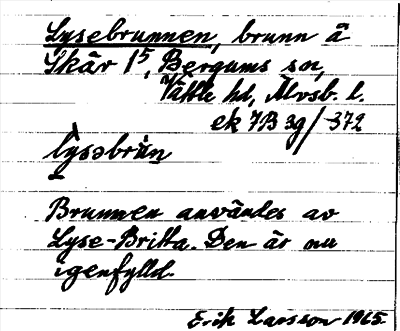 Lysebrunnen, brunn å
Skår 1⁵, Bergums sn,
Vättle hd, Älvsb. l.
ek 7B 3g/372
lỳsəbrùn
Brunnen användes av
Lyse-Britta. Den är nu
igenfylld.
Erik Larsson 1965.